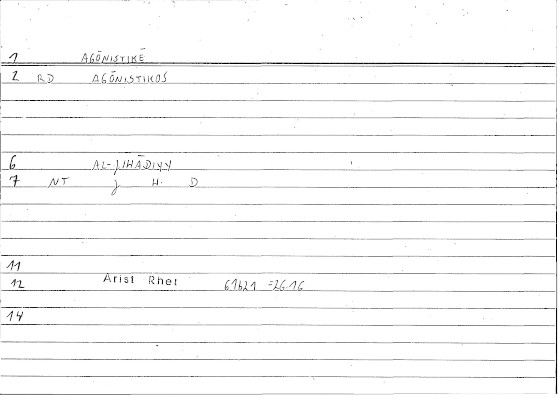 1 AGŌNISTIKĒ
2 RD AGŌNISTIKOS
6 AL-JIHĀDIYY
7 NT J H D
11
12 Arist Rhet 61b21 =26.16
14